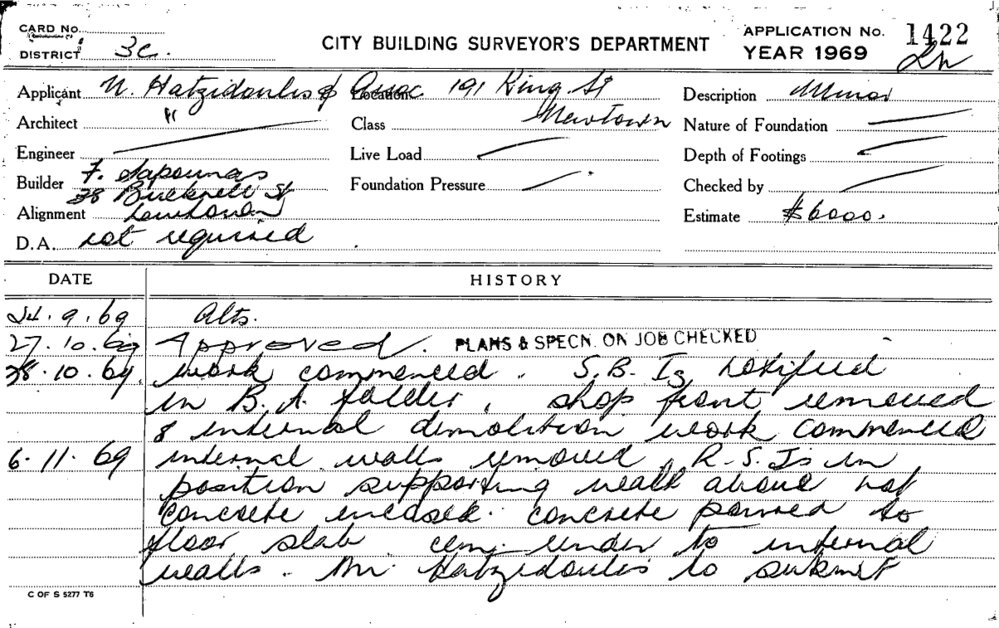 CARD No.
DISTRICT 3c.
CITY BUILDING SURVEYOR'S DEPARTMENT
APPLICATION No. 1422
YEAR 1969
Applicant N. Hatzidoulis & Assoc Location 191 King St
Newtown
Description Minor
Architect "
Class
Nature of Foundation
Engineer
Live Load
Depth of Footings
Builder F. Sapounas
28 Bucknell St
Foundation Pressure
Checked by
Alignment Newtown
Estimate $6000.
D.A. not required
DATE HISTORY
24.9.69 Alts.
27.10.69 Approved. PLANS & SPECN. ON JOB CHECKED
28.10.69. work commenced. S.B. Is notified
in B.A folder, shop front removed
& internal demolition work commenced
6.11.69 internal walls removed, R.S.Js in
position supporting wall above not
concrete encased. concrete poured to
floor slab cem. render to internal
walls. Mr Hatzidoulis to submit
C OF S 5277 T6